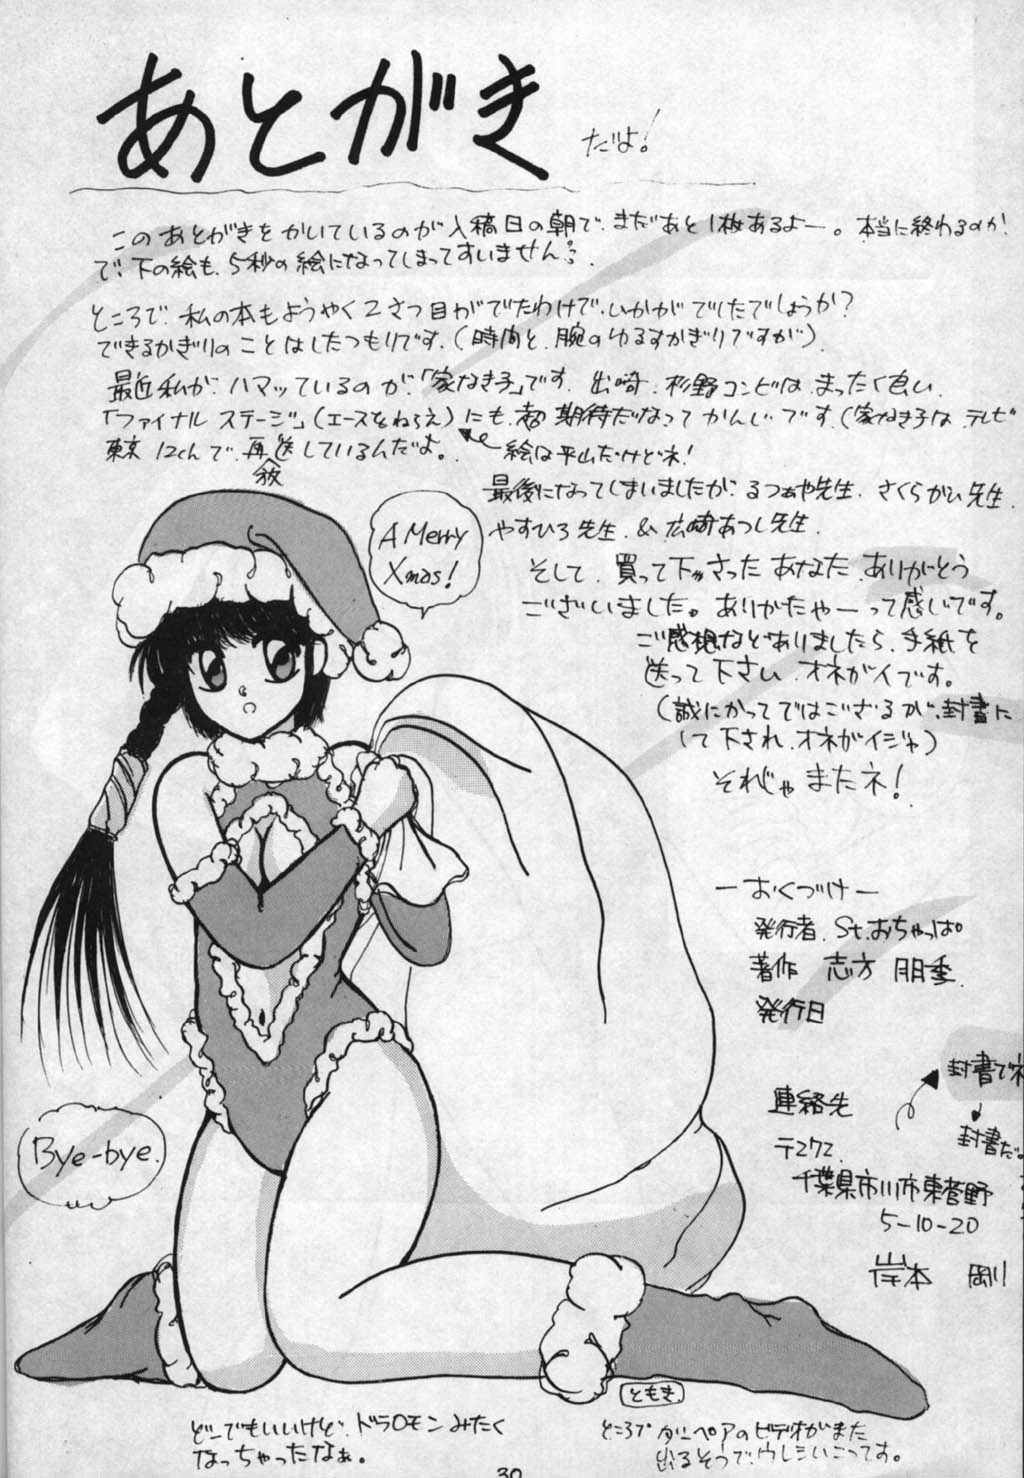 あとがき だよ!
このあとがきをかいているのが入稿日の朝で、まだあと1枚あるよー。本当に終わるのか
で、下の絵も、5秒の絵になってしまってすいません。
ところで、私の本もようやく2さつ目がでたわけで、いかがでしたでしょうか?
できるかぎりのことはしたつもりです。(時間と、腕のゆるすかぎりですが)
最近私がハマッているのが「家なき子」です。出崎、杉野コンビは、まったく良い
「ファイナルステージ」(エースをねらえ)にも、超期待だなってかんじです(家なき子は、テレビ
東京12chんで、再放送しているんだよ。
絵は平山だけどネ!
最後になってしまいましたが、るつぁや先生、さくらかひ先生、
やすひろ先生、&広崎あつし先生、
そして、買って下さったあなた、ありがとう
ございました。ありがたやーって感じです。
ご感想などありましたら、手紙を
送って下さい、オネがイです。
(誠にかってではござるが、封書に
して下され、オネがイジャ)
それじゃまたネ!
A Merry
Xmas!
ーおくづけー
発行者、St.おちゃっぱ
著作 志方 朋季
発行日
封書でネ
連絡先
封書だよ
〒272
千葉県市川市東菅野
5-10-20
岸本 剛
Bye-bye.
ともき
どーでもいいけど、ドラ〇モンみたく
なっちゃったなぁ。
ところでダーペアのビデオがまた
出るそうで、ウレシいこってす。
30